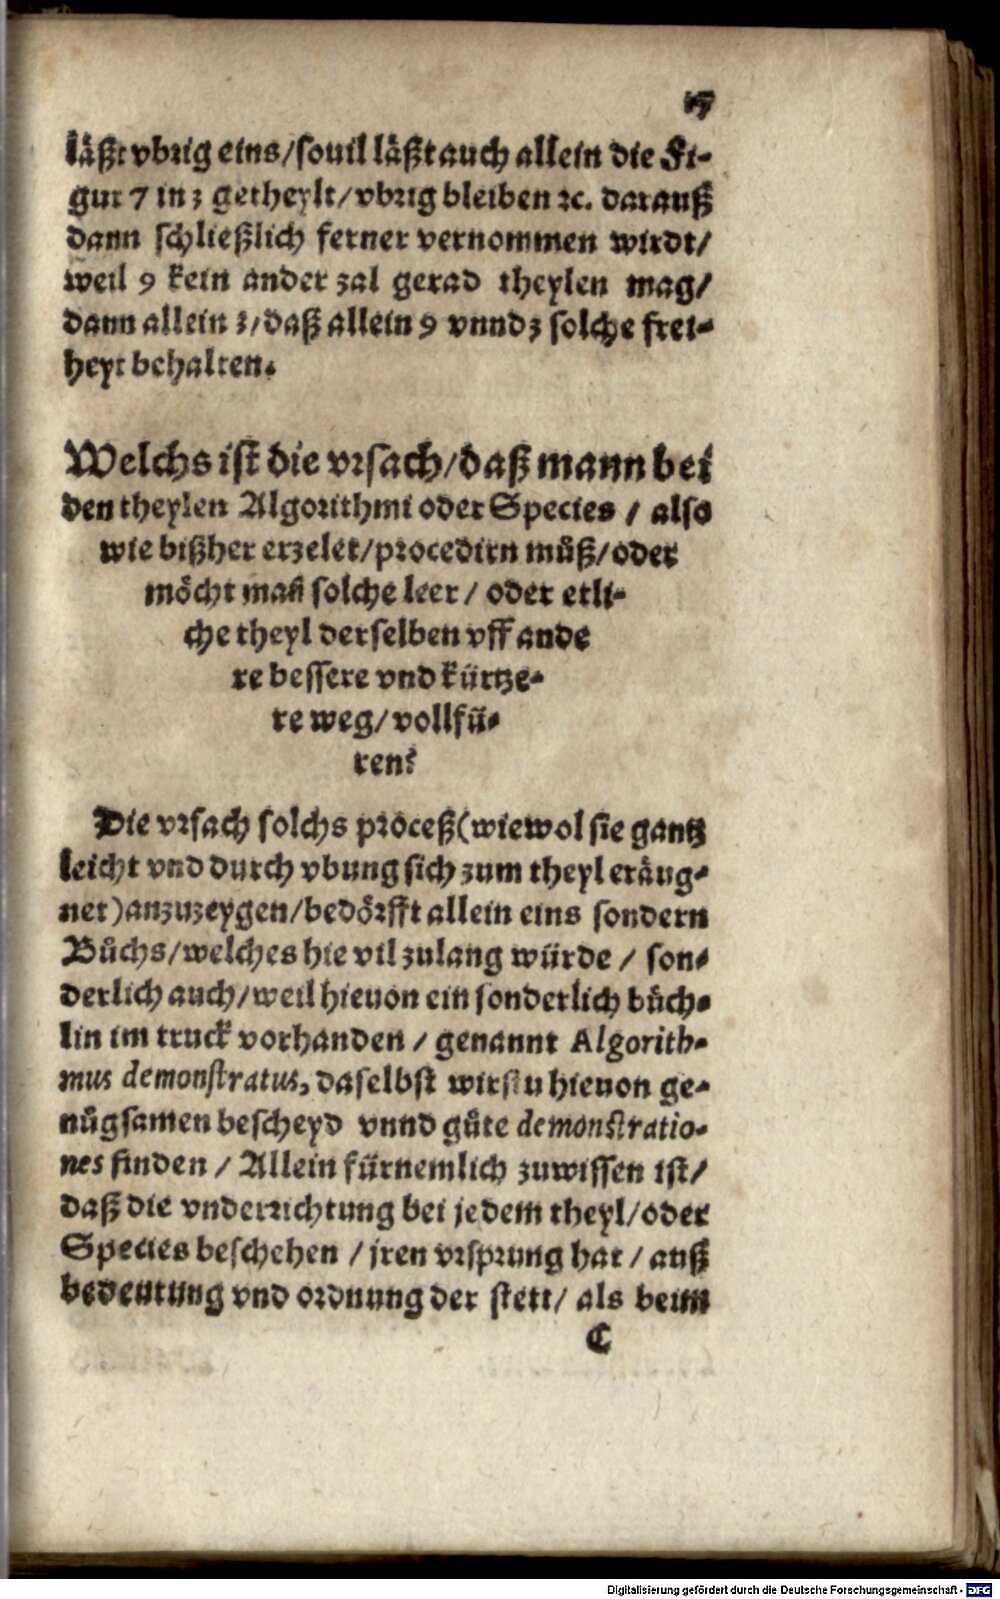 17
läßt vbrig eins/souil läßt auch allein die Fi-
gur 7 in 3 getheylt/vbrig bleiben ꝛc. darauß
dann schließlich ferner vernommen wirdt/
weil 9 kein ander zal gerad theylen mag/
dann allein 3/daß allein 9 vnnd 3 solche frei-
heyt behalten.
Welchs ist die vrsach/daß mann bei
den theylen Algorithmi oder Species / also
wie bißher erzelet/procedirn müß/oder
möcht mañ solche leer / oder etli-
che theyl derselben vff ande
re bessere vnd kürtze-
re weg/vollfü-
ren?
Die vrsach solchs proceß(wiewol sie gantz
leicht vnd durch vbung sich zum theyl eräug-
net)anzuzeygen/bedörfft allein eins sondern
Bůchs/welches hie vil zulang würde / son-
derlich auch/weil hieuon ein sonderlich bůch-
lin im truck vorhanden / genannt Algorith-
mus demonstratus, daselbst wirstu hieuon ge-
nůgsamen bescheyd vnnd gůte demonstratio-
nes finden / Allein fürnemlich zuwissen ist/
daß die vnderrichtung bei jedem theyl/oder
Species beschehen / jren vrsprung hat / auß
bedeutung vnd ordnung der stett/ als beim
C
Digitalisierung gefördert durch die Deutsche Forschungsgemeinschaft - DFG